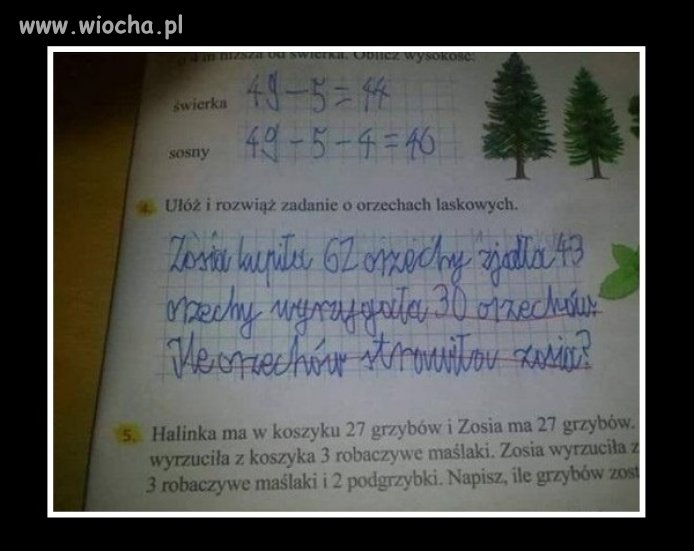 www.wiocha.pl
4 m niższa od świerka. Oblicz wysokość:
świerka 49-5=44
sosny 49-5-4=40
4. Ułóż i rozwiąż zadanie o orzechach laskowych.
Zosia kupiła 62 orzechy zjadła 43
orzechy wyrzygała 30 orzechów.
Ile orzechów strawiła zosia?
5. Halinka ma w koszyku 27 grzybów i Zosia ma 27 grzybów.
wyrzuciła z koszyka 3 robaczywe maślaki. Zosia wyrzuciła z
3 robaczywe maślaki i 2 podgrzybki. Napisz, ile grzybów zost